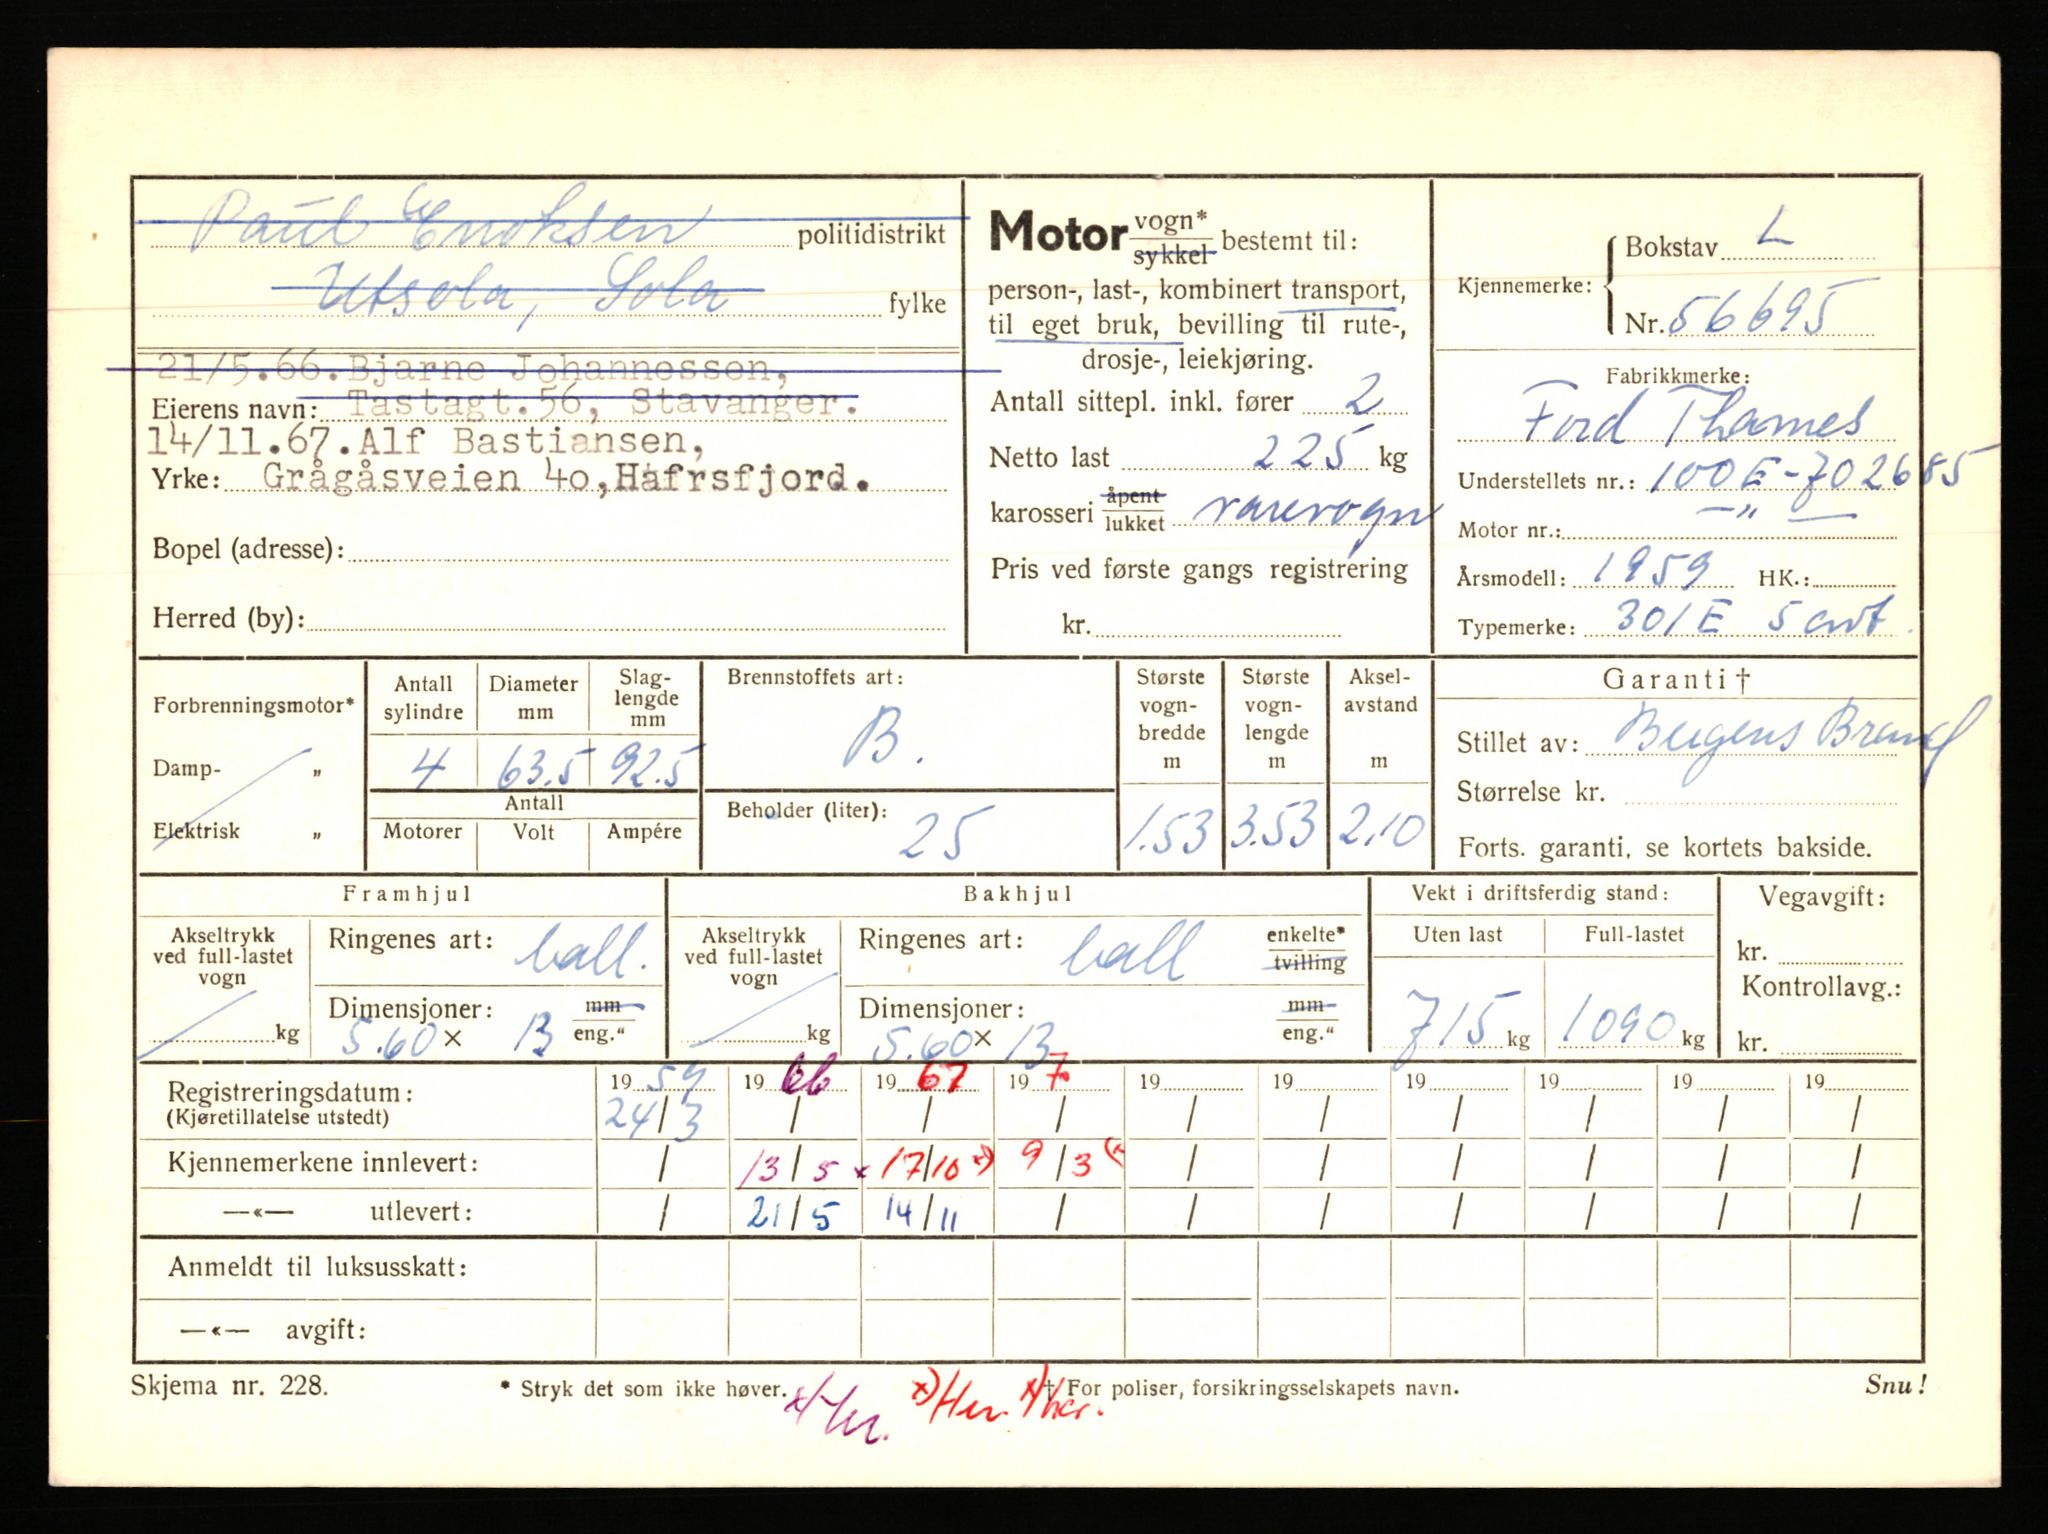 Paul Enoksen politidistrikt
Utsola, Sola fylke
21/5.66. Bjarne Johannessen,
Eierens navn: Tastagt. 56, Stavanger.
14/11.67. Alf Bastiansen,
Yrke: Grågåsveien 4o, Hafrsfjord.
Bopel (adresse):
Herred (by):
Motor vogn* sykkel bestemt til:
person-, last-, kombinert transport,
til eget bruk, bevilling til rute-,
drosje-, leiekjøring.
Antall sittepl. inkl. fører 2
Netto last 225 kg
karosseri åpent lukket varevogn
Pris ved første gangs registrering
kr.
Kjennemerke: Bokstav L
Nr. 56695
Fabrikkmerke:
Ford Thames
Understellets nr.: 100E-702685
Motor nr.: — „ —
Årsmodell: 1959 HK.:
Typemerke: 301E 5 cwt.
Forbrenningsmotor*
Damp- „
Elektrisk „
Antall sylindre 4
Diameter mm 63.5
Slaglengde mm 92.5
Antall
Motorer Volt Ampére
Brennstoffets art:
B.
Beholder (liter): 25
Største vognbredde m 1.53
Største vognlengde m 3.53
Akselavstand m 2.10
Garanti †
Stillet av: Bergens Brand
Størrelse kr.
Forts. garanti, se kortets bakside.
Framhjul
Akseltrykk ved full-lastet vogn kg
Ringenes art: ball.
Dimensjoner: mm eng.“
5.60 × 13
Bakhjul
Akseltrykk ved full-lastet vogn kg
Ringenes art: ball enkelte* tvilling
Dimensjoner: mm eng.“
5.60 × 13
Vekt i driftsferdig stand:
Uten last 715 kg
Full-lastet 1090 kg
Vegavgift:
kr.
Kontrollavg.:
kr.
Registreringsdatum: 19 59 19 66 19 67 19 70 19 19 19 19 19 19
(Kjøretillatelse utstedt) 24/3 / / / / / / / / /
Kjennemerkene innlevert: / 13/5 x 17/10 x) 9/3 (x / / / / / /
—«— utlevert: / 21/5 14/11 / / / / / / /
Anmeldt til luksusskatt:
—«— avgift:
Skjema nr. 228. * Stryk det som ikke høver. † For poliser, forsikringsselskapets navn. Snu!